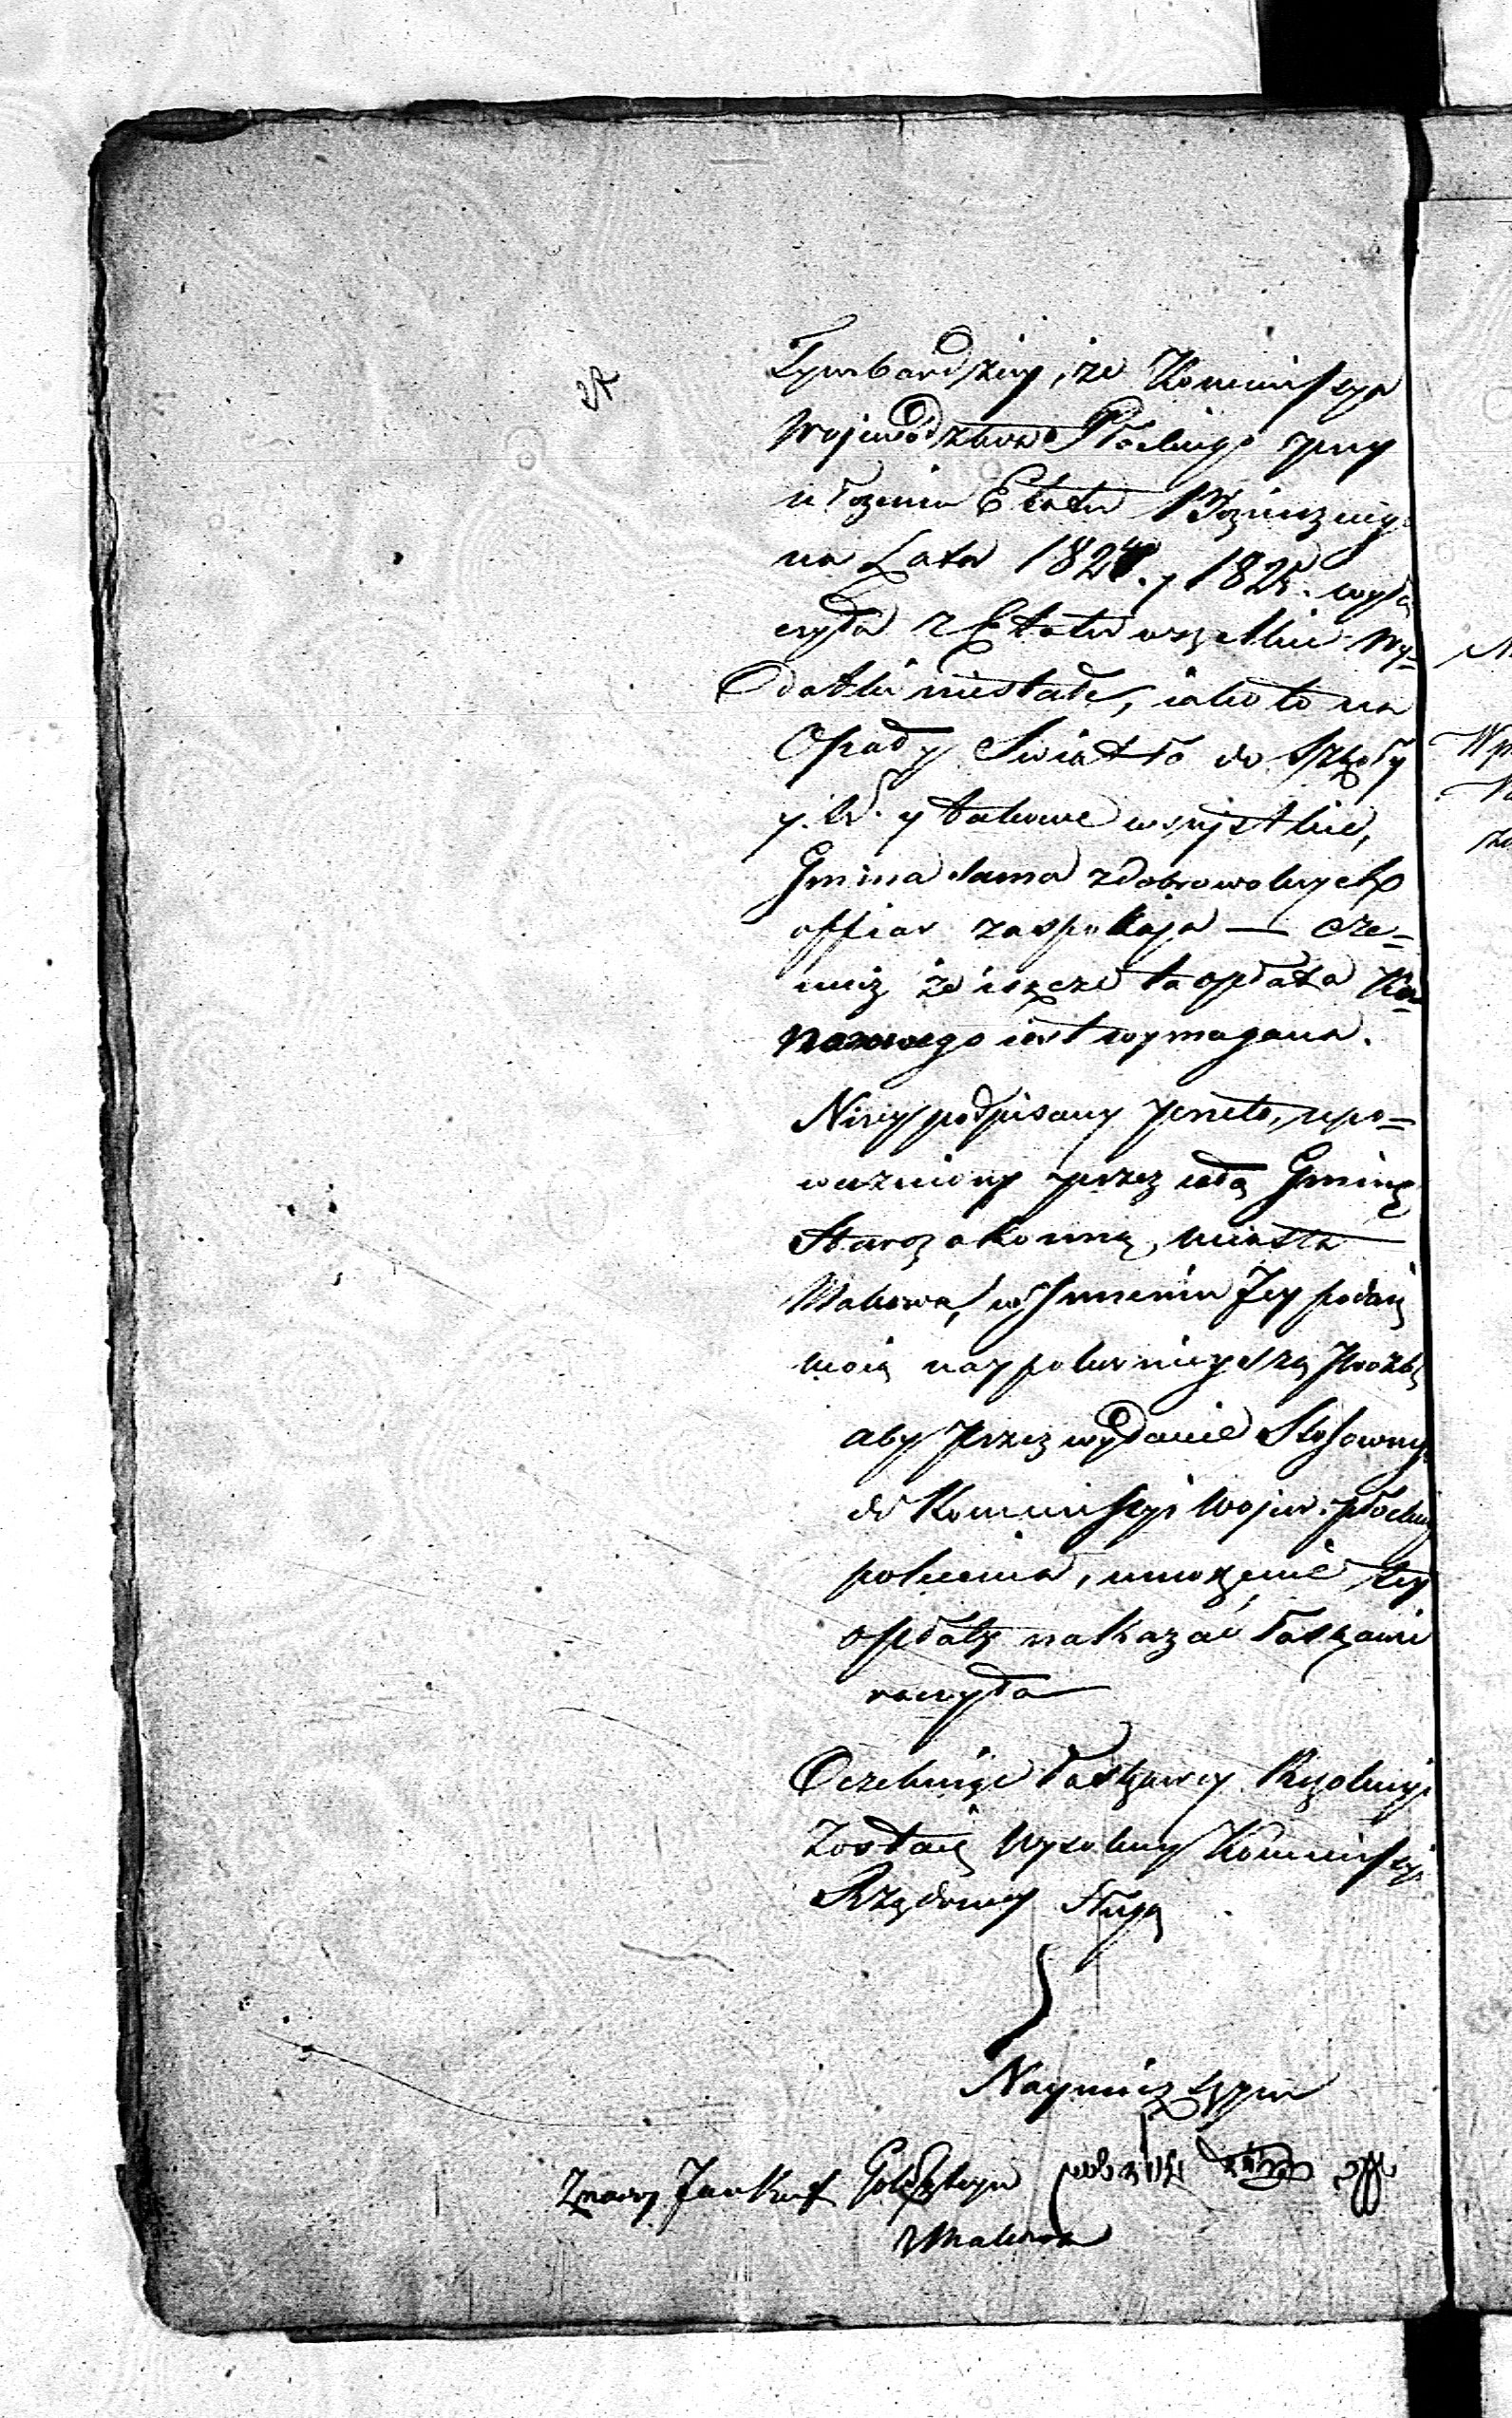 Tymbardziey, że Kommissya
Wojewodztwa Płockiego przy
ułożeniu Etatu Bożniczneg
na Lata 1824. y 1825. wyłą
czyła z Etatu wszelkie Wy=
datki niestałe, iako to na
Opał y Swiatło do Szkoły
y takowe wszystkie,
Gmina sama z dobrowolnych
offiar zaspokaja — cze=
muż że ieszcze ta opłata Ko
nowego iest wymagana.
Niżey podpisany przeto, upo=
ważniony przez całą Gminę
Starozakonną, miasta
Makowa, w Jmieniu Jey podaię
moią naypokornieyszą Proźbę
aby przez wydanie Stosowny
do Kommissyi Wojew. Płockiey
polecenia, umorzenie tey
opłaty nakazać łaskawie
raczyła
Oczekuiąc łaskawey Rezolucyi
Zostaię Wysokiey Kommissyi
Rządowey Sługą
Nayniższym
Goldszteyn
z Makowa